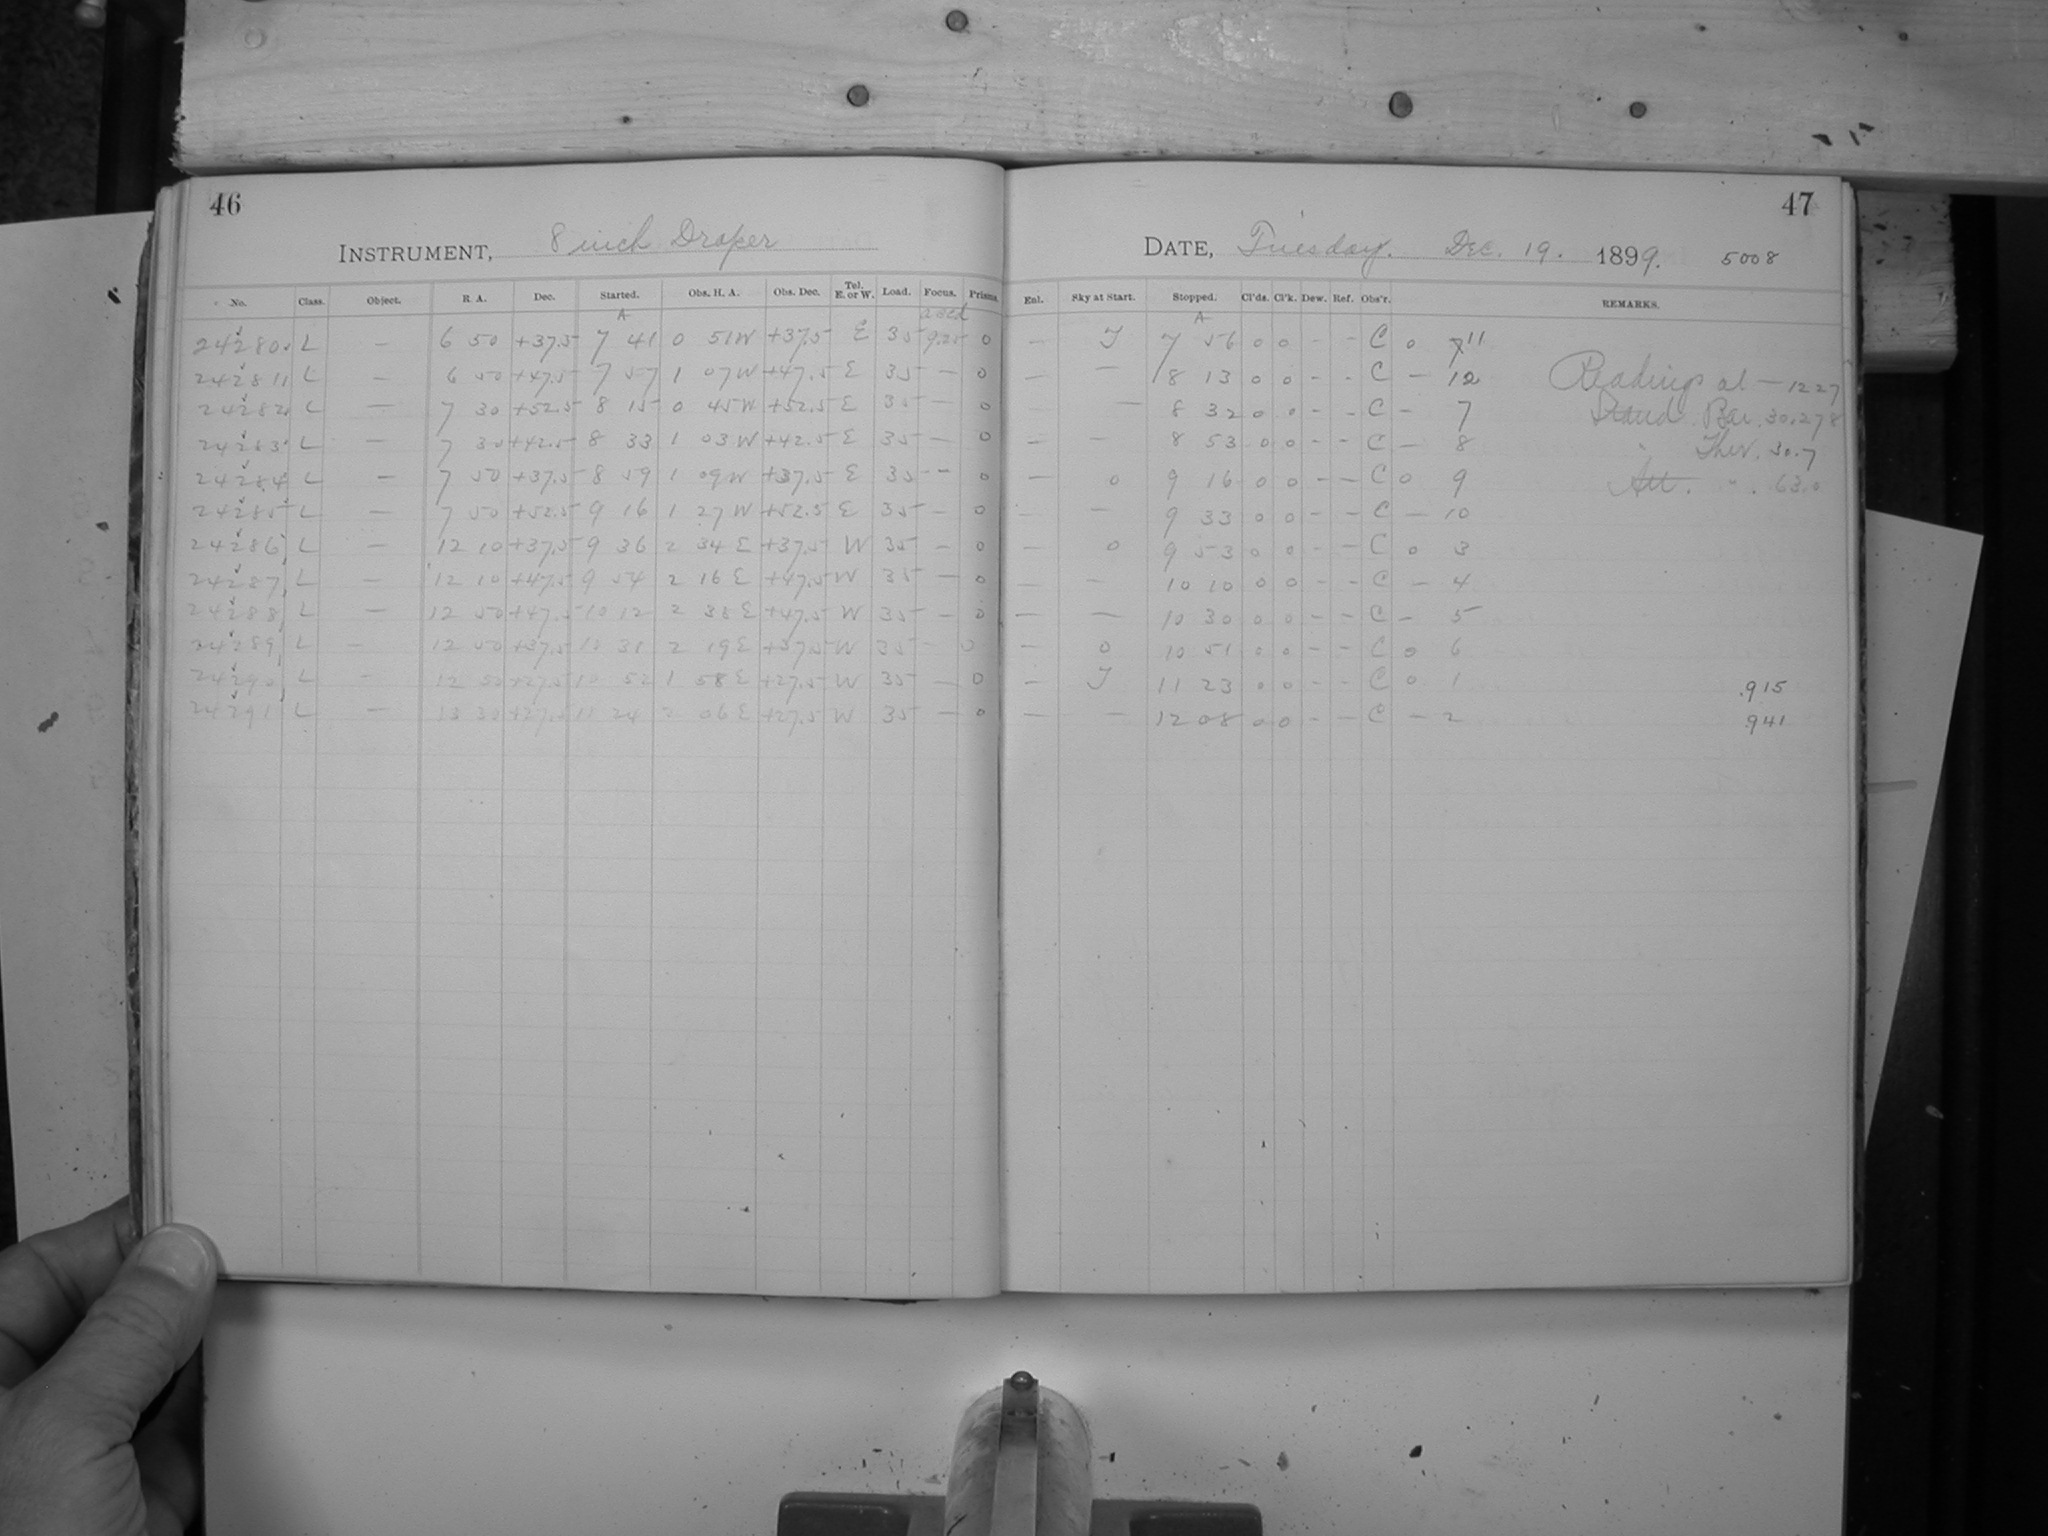 46
INSTRUMENT, 8 inch Draper
No. Class. Object. R. A. Dec. Started. Obs. H. A. Obs. Dec. Tel. E. or W. Load. Focus. Prisms.
A
24280 L — 6 50 +37.5 7 41 0 51 W +37.5 E 35 9.25 0
24281 L — 6 50 +47.5 7 57 1 07 W +47.5 E 35 — 0
24282 L — 7 30 +52.5 8 15 0 45 W +52.5 E 35 — 0
24283 L — 7 30 +42.5 8 33 1 03 W +42.5 E 35 — 0
24284 L — 7 50 +37.5 8 59 1 09 W +37.5 E 35 — 0
24285 L — 7 50 +52.5 9 16 1 27 W +52.5 E 35 — 0
24286 L — 12 10 +37.5 9 36 2 34 E +37.5 W 35 — 0
24287 L — 12 10 +47.5 9 54 2 16 E +47.5 W 35 — 0
24288 L — 12 50 +47.5 10 12 2 38 E +47.5 W 35 — 0
24289 L — 12 50 +37.5 10 31 2 19 E +37.5 W 35 — 0
24290 L — 12 50 +27.5 10 52 1 58 E +27.5 W 35 — 0
24291 L — 13 30 +27.5 11 24 2 06 E +27.5 W 35 — 0
47
DATE, Tuesday. Dec. 19. 1899. 5008
Enl. Sky at Start. Stopped. Cl'ds. Cl'k. Dew. Ref. Obs'r. REMARKS.
A
— T 7 56 0 0 - - C 0 11
— — 8 13 0 0 - - C — 12 Readings at — 12 27
— 8 32 0 0 - - C — 7 Stand. Bar. 30.278
— — 8 53 0 0 - - C — 8 " Ther. 30.7
— 0 9 16 0 0 - - C 0 9 Att. " 63.0
— — 9 33 0 0 - - C — 10
— 0 9 53 0 0 - - C 0 3
— — 10 10 0 0 - - C — 4
— — 10 30 0 0 - - C — 5
— 0 10 51 0 0 - - C 0 6
— T 11 23 0 0 - - C 0 1 .915
— — 12 08 0 0 - - C — 2 .941